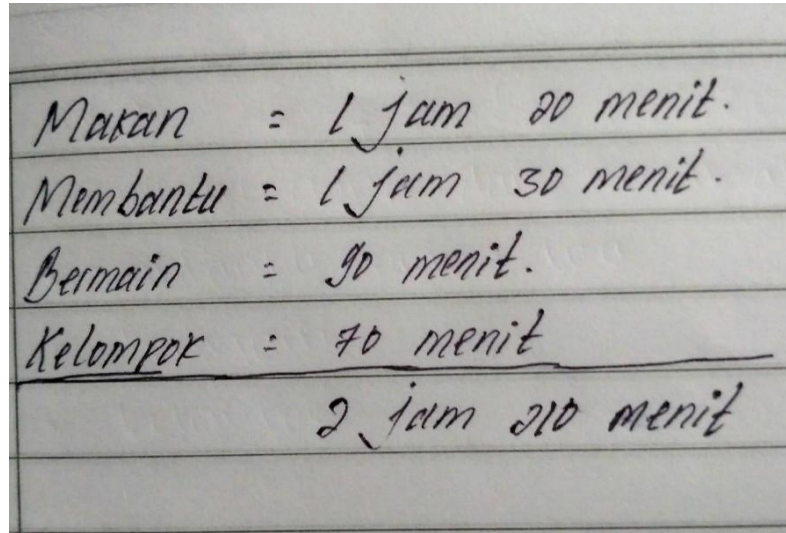 Makan = 1 jam 20 menit.
Membantu = 1 jam 30 menit.
Bermain = 90 menit.
Kelompok = 70 menit
2 jam 210 menit